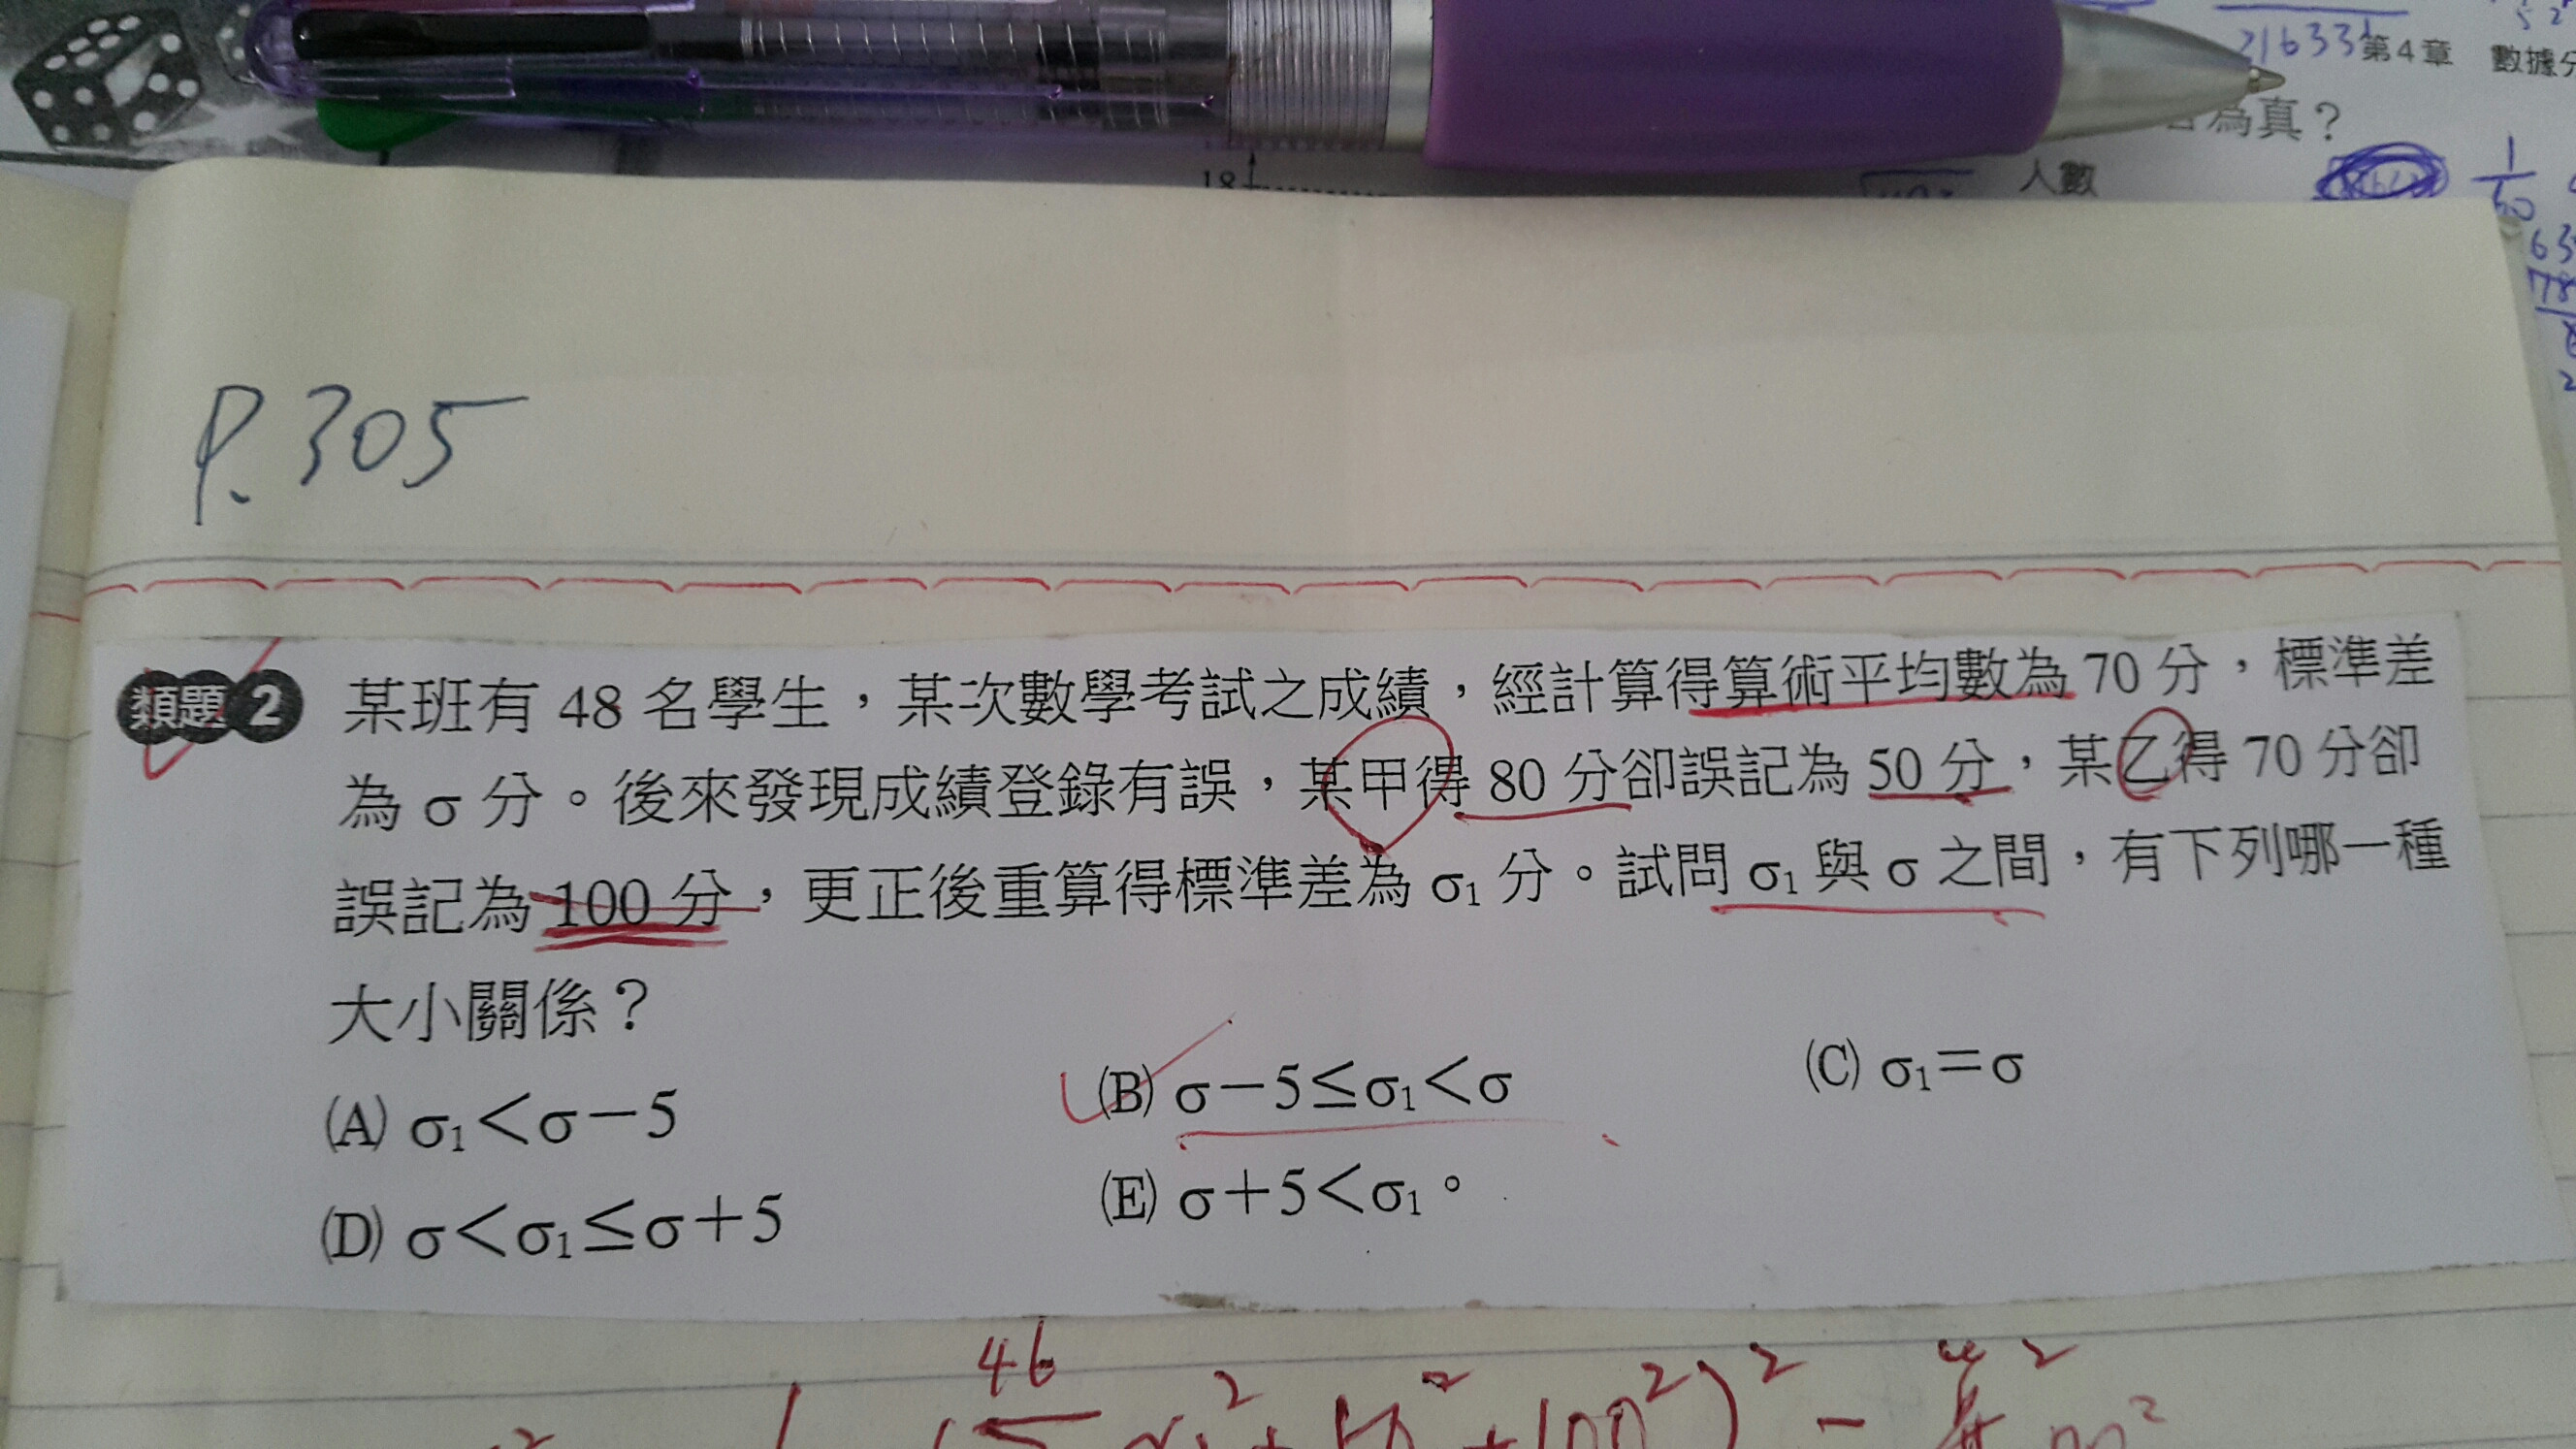 21633
第4章 數據分
為真？
18
人數
1
60
63
78
P.305
類題2 某班有 48 名學生，某次數學考試之成績，經計算得算術平均數為 70 分，標準差
為 σ 分。後來發現成績登錄有誤，某甲得 80 分卻誤記為 50 分，某乙得 70 分卻
誤記為 100 分，更正後重算得標準差為 σ₁ 分。試問 σ₁ 與 σ 之間，有下列哪一種
大小關係？
(A) σ₁＜σ－5 (B) σ－5≤σ₁＜σ (C) σ₁＝σ
(D) σ＜σ₁≤σ＋5 (E) σ＋5＜σ₁。
46